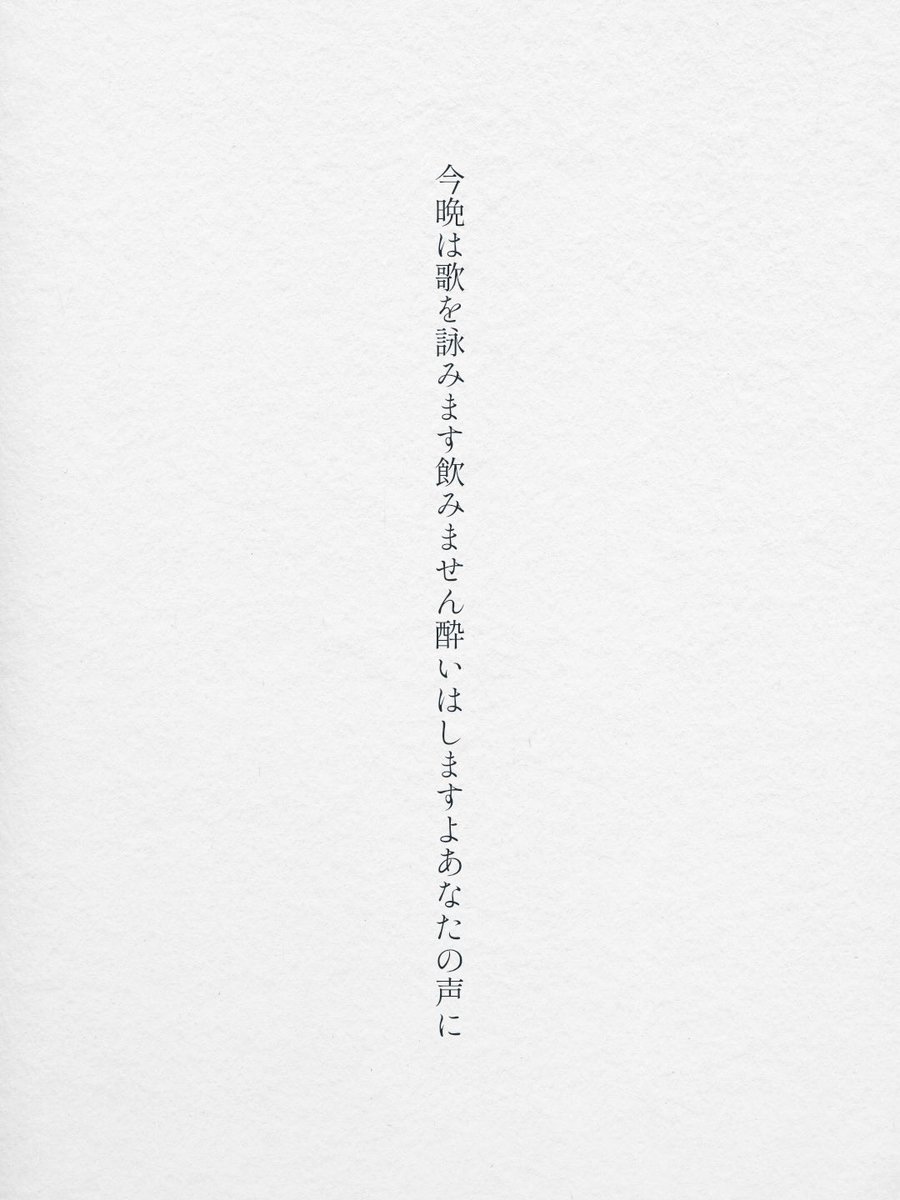 今晩は歌を詠みます飲みません酔いはしますよあなたの声に